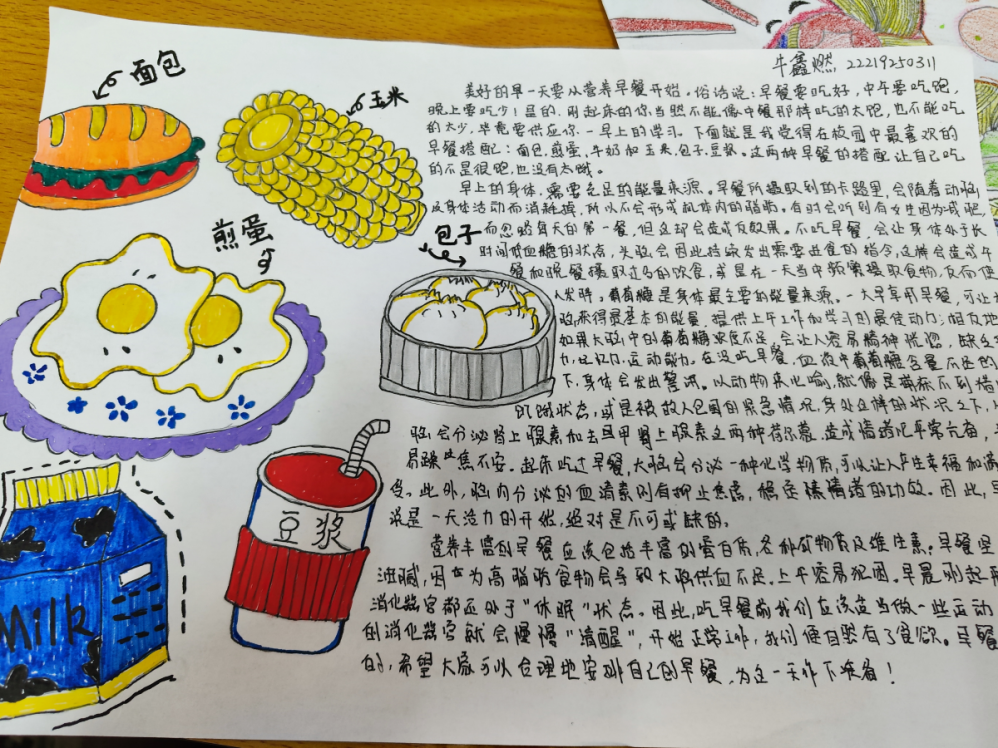 牛鑫燃 22219250311
面包
玉米
煎蛋
包子
豆浆
Milk
美好的早一天要从营养早餐开始。俗话说：早餐要吃好，中午要吃饱，
晚上要吃少！是的，刚起床的你当然不能像中餐那样吃的太饱，也不能吃
的太少，毕竟要供应你一早上的学习。下面就是我觉得在校园中最喜欢的
早餐搭配：面包，煎蛋，牛奶和玉米，包子，豆浆。这两种早餐的搭配让自己吃
的不是很饱，也没有太饿。
早上的身体，需要充足的能量来源。早餐所摄取到的卡路里，会随着动脑
及身体活动而消耗掉，所以不会形成机体内的脂肪。有时会听到有女生因为减肥，
而忽略每天的第一餐，但这却会造成反效果。不吃早餐，会让身体处于长
时间低血糖的状态，大脑会因此持续发出需要进食的指令，这将会造成午
餐和晚餐摄取过多的饮食，或是在一天当中频繁摄取食物，反而使
人发胖。葡萄糖是身体最主要的能量来源。一大早享用早餐，可让
脑获得最基本的能量，提供上午工作和学习的最佳动力；相反地
如果大脑中的葡萄糖浓度不足，会让人容易精神恍惚，缺乏
力，记忆力，运动能力。在没吃早餐，血液中葡萄糖含量不足的
下，身体会发出警讯。以动物来比喻，就像是猎标不到猎
饥饿状态，或是被敌人包围的紧急情况，身处这样的状况之下，
脑会分泌肾上腺素和去甲肾上腺素这两种荷尔蒙，造成情绪比平常亢奋，
易躁焦不安。起床吃过早餐，大脑会分泌一种化学物质，可以让人产生幸福和满
受。此外，脑内分泌的血清素则有抑止焦虑，稳定情绪的功效。因此，早
说是一天活力的开始，绝对是不可或缺的。
营养丰富的早餐应该包括丰富的蛋白质，各种矿物质及维生素。早餐坚
油腻，因为高脂肪食物会导致大脑供血不足，上午容易犯困。早晨刚起
消化器官都还处于“休眠”状态。因此，吃早餐前我们应该适当做一些运动
的消化器官就会慢慢“清醒”，开始正常工作，我们便自然有了食欲。早餐
的，希望大家可以合理地安排自己的早餐，为这一天作下准备！